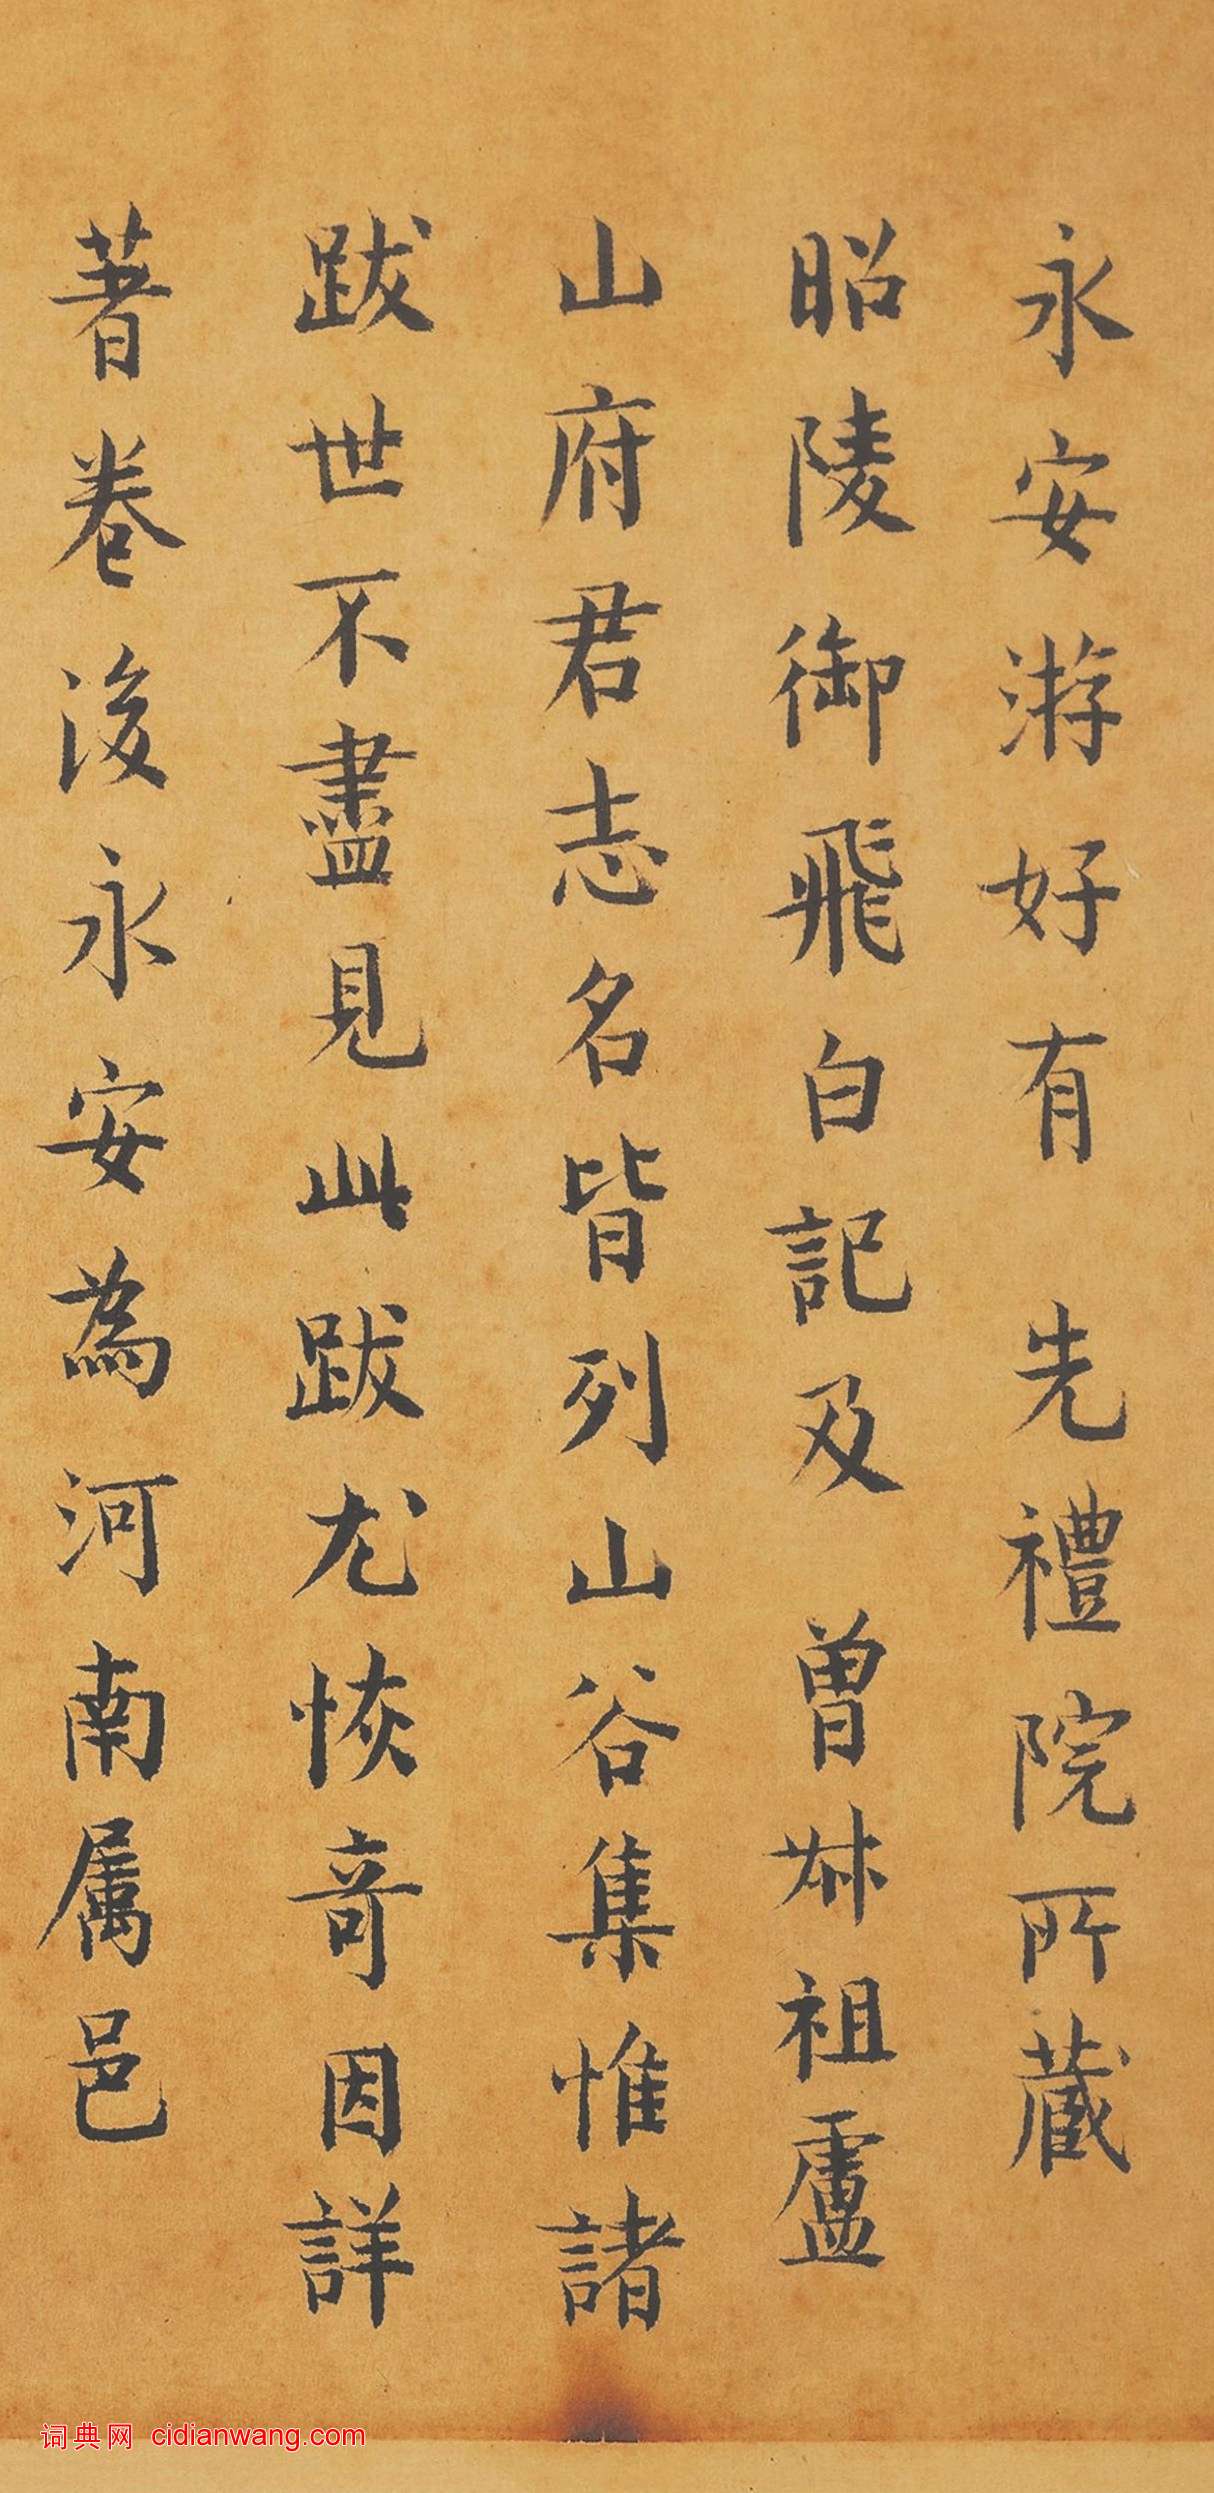 永安游好有　先禮院所藏
昭陵御飛白記及　曾叔祖盧
山府君志名皆列山谷集惟諸
跋世不盡見此跋尤恢奇因詳
著卷後永安為河南屬邑
词典网 cidianwang.com